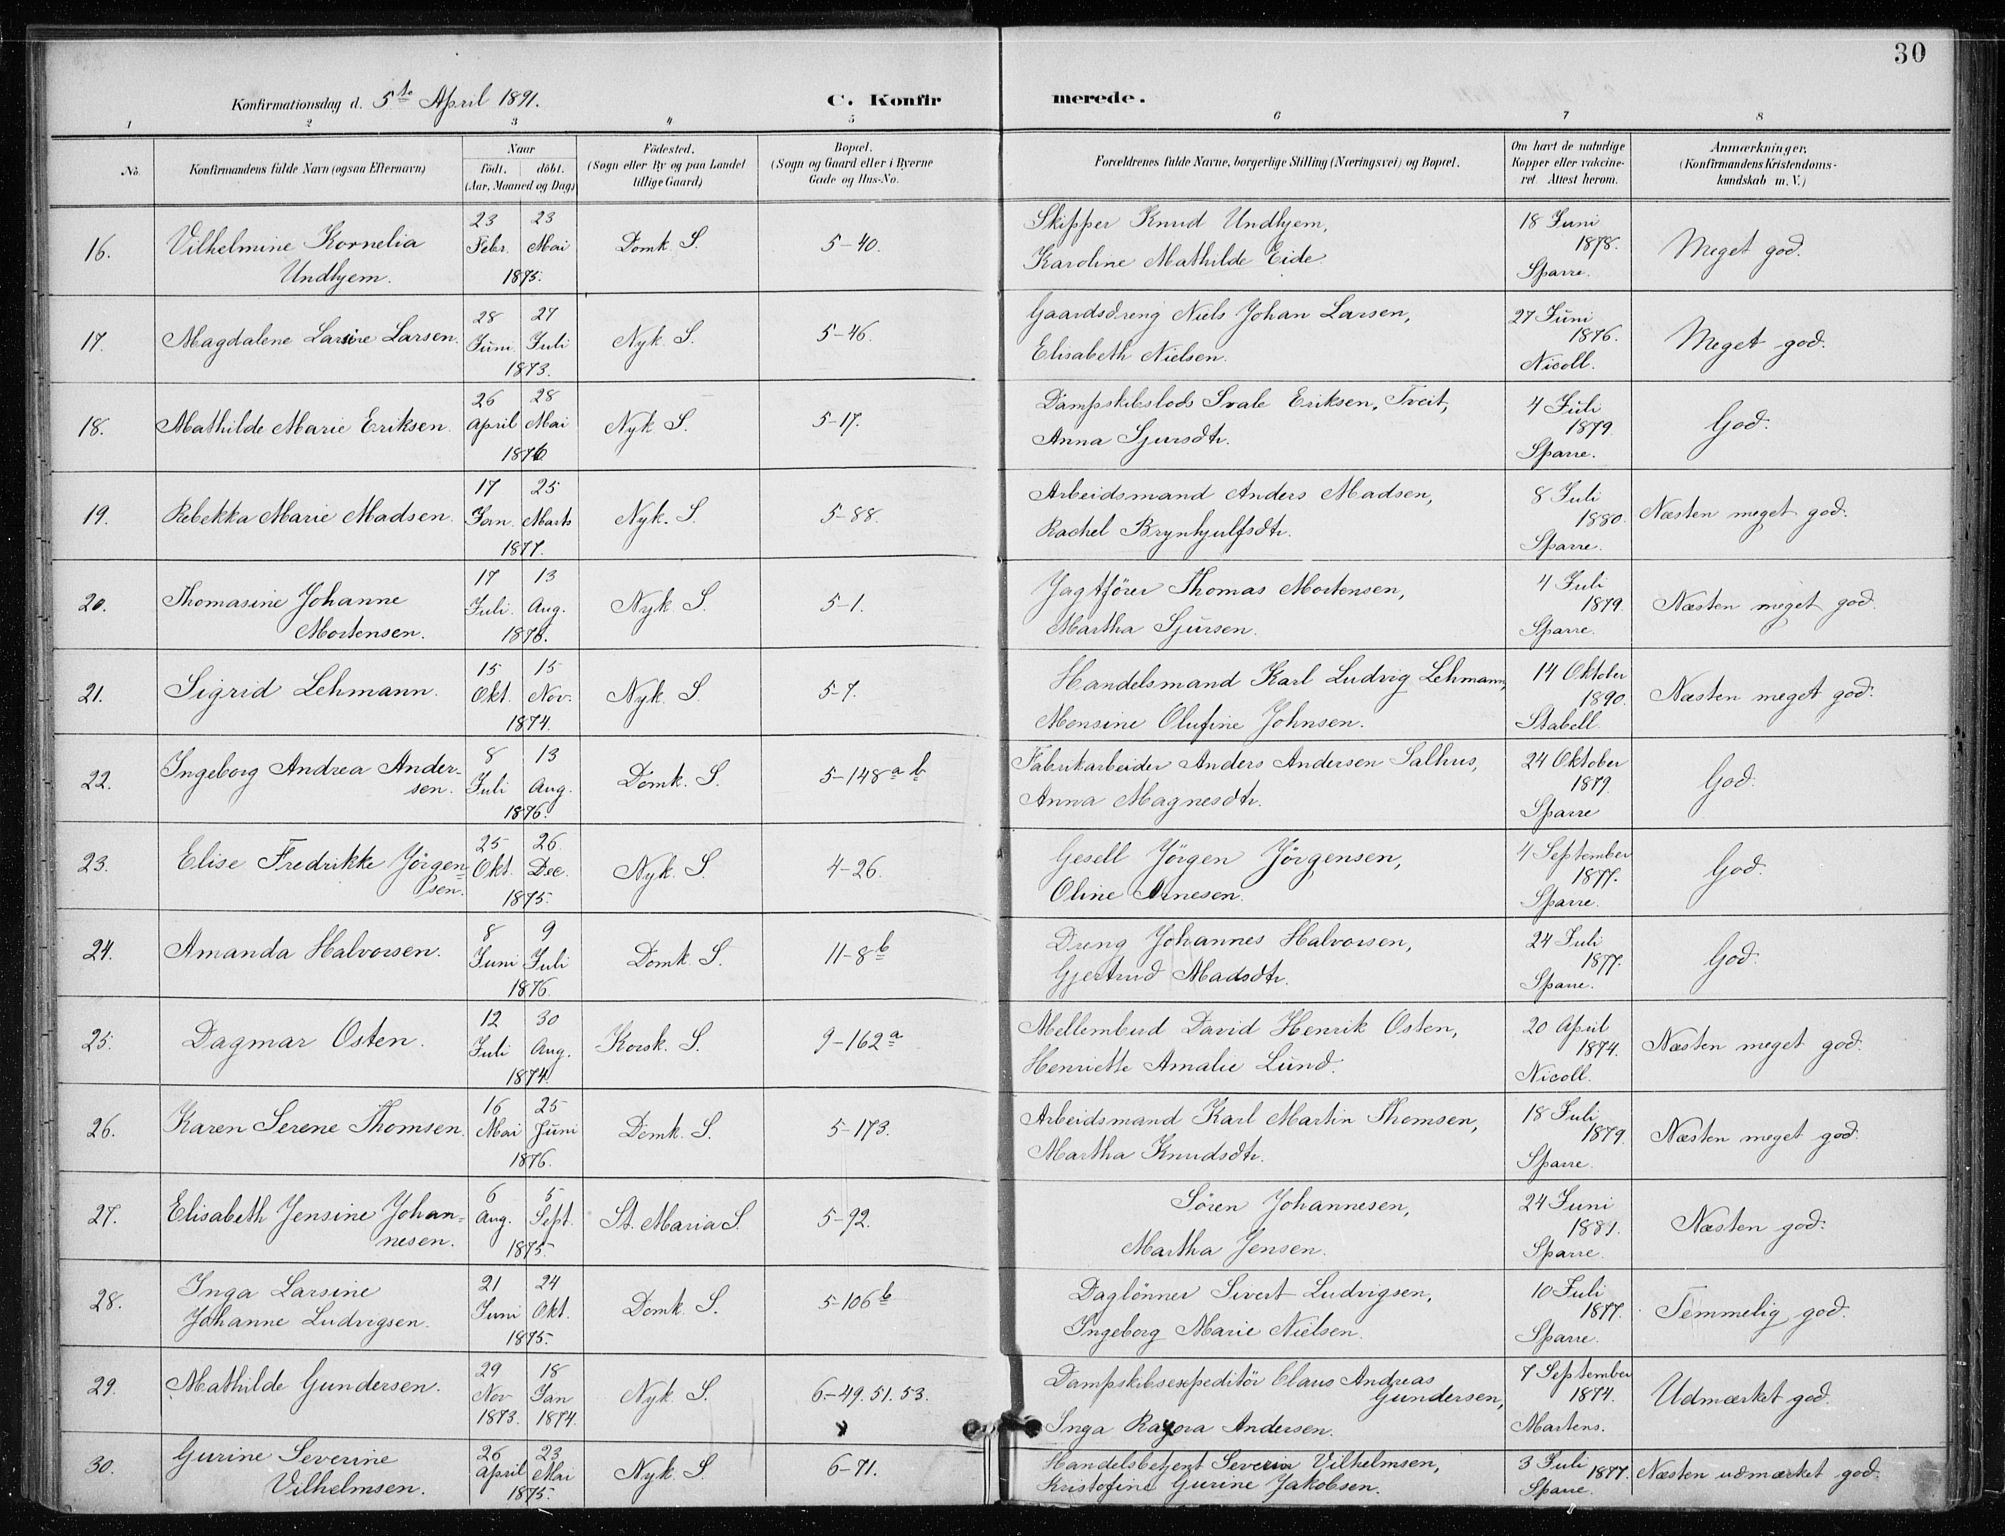 30
Konfirmationsdag d. 5te April 1891. C. Konfir merede.
1 2 3 4 5 6 7 8
No. Konfirmandens fulde Navn (ogsaa Efternavn) Naar födt. döbt. (Aar, Maaned og Dag) Födested. (Sogn eller By og paa Landet tillige Gaard) Bopæl. (Sogn og Gaard eller i Byerne Gade og Hus-No. Forældrenes fulde Navne, borgerlige Stilling (Næringsvei) og Bopæl. Om havt de naturlige Kopper eller vakcineret. Attest herom. Anmærkninger. (Konfirmandens Kristendomskundskab m. V.)
16. Vilhelmine Kornelia Undhjem. 23 Febr. 23 Mai 1875. Domk S. 5-40. Skipper Knud Undhjem, Karoline Mathilde Eide 18 Juni 1878. Sparre. Meget god.
17. Magdalene Larsine Larsen. 28 Juni 27 Juli 1873. Nyk. S. 5-46. Gaardsdreng Niels Johan Larsen, Elisabeth Nielsen. 27 Juni 1876. Nicoll. Meget god.
18. Mathilde Marie Eriksen. 26 April 28 Mai 1876 Nyk. S. 5-17. Dampskibslods Svale Eriksen, Tveit, Anna Sjursdtr. 4 Juli 1879. Sparre. God.
19. Rebekka Marie Madsen. 17 Jan. 25 Marts 1877. Nyk. S. 5-88. Arbeidsmand Anders Madsen, Rachel Brynhjulfsdtr. 8 Juli 1880. Sparre. Næsten meget god.
20. Thomasine Johanne Mortensen. 17 Juli. 13 Aug. 1876. Nyk. S. 5-1. Jagtfører Thomas Mortensen, Martha Sjursen. 4 Juli 1879. Sparre. Næsten meget god.
21. Sigrid Lehmann. 15 Okt. 15 Nov. 1874. Nyk. S. 5-7. Handelsmand Karl Ludvig Lehmann, Monsine Olufine Johnsen. 14 Oktober 1890. Stabell. Næsten meget god.
22. Ingeborg Andrea Andersen. 8 Juli 13 Aug. 1876. Domk. S. 5-148 a b Fabrikarbeider Anders Andersen Salhus, Anna Magnesdtr. 24 Oktober 1879. Sparre God.
23. Elise Fredrikke Jörgensen. 25 Okt. 26 Dec. 1875. Nyk. S. 4-26. Gesell Jörgen Jörgensen, Oline Arnesen. 4 September 1877. Sparre. God.
24. Amanda Halvorsen. 8 Juni 9 Juli 1876. Domk. S. 11-8 b Dreng Johannes Halvorsen, Gjertrud Madsdtr. 24 Juli 1877. Sparre. God.
25. Dagmar Osten. 12 Juli 30 Aug. 1874. Korsk. S. 9-162 a Mellembud David Henrik Osten, Henriette Amalie Lund. 20 April 1874. Nicoll. Næsten meget god.
26. Karen Serene Thomsen. 16 Mai 25 Juni 1876. Domk. S. 5-173. Arbeidsmand Karl Martin Thomsen, Martha Knudsdtr. 18 Juli 1879. Sparre. Næsten meget god.
27. Elisabeth Jensine Johannesen. 6 Aug. 5 Sept. 1875. St. Maria S. 5-92. Sören Johannesen, Martha Jensen. 24 Juni 1881. Sparre. Næsten god.
28. Inga Larsine Johanne Ludvigsen. 21 Juni 24 Okt. 1875. Domk. S. 5-106 b Daglönner Sivert Ludvigsen, Ingeborg Marie Nielsen. 10 Juli 1877. Sparre. Temmelig god.
29. Mathilde Gundersen. 29 Nov 1873. 18 Jan 1874. Nyk S. 6-49. 51. 53. Dampskibsexpeditör Claus Andreas Gundersen, Inga Andersen. 7 September 1874. Martens. Udmærket god.
30. Gurine Severine Vilhelmsen. 26 April 23 Mai 1875. Nyk. S. 6-71. Handelsbetjent Severin Vilhelmsen, Kristofine Gurine Jakobsen. 3 Juli 1877. Sparre. Næsten udmærket god.